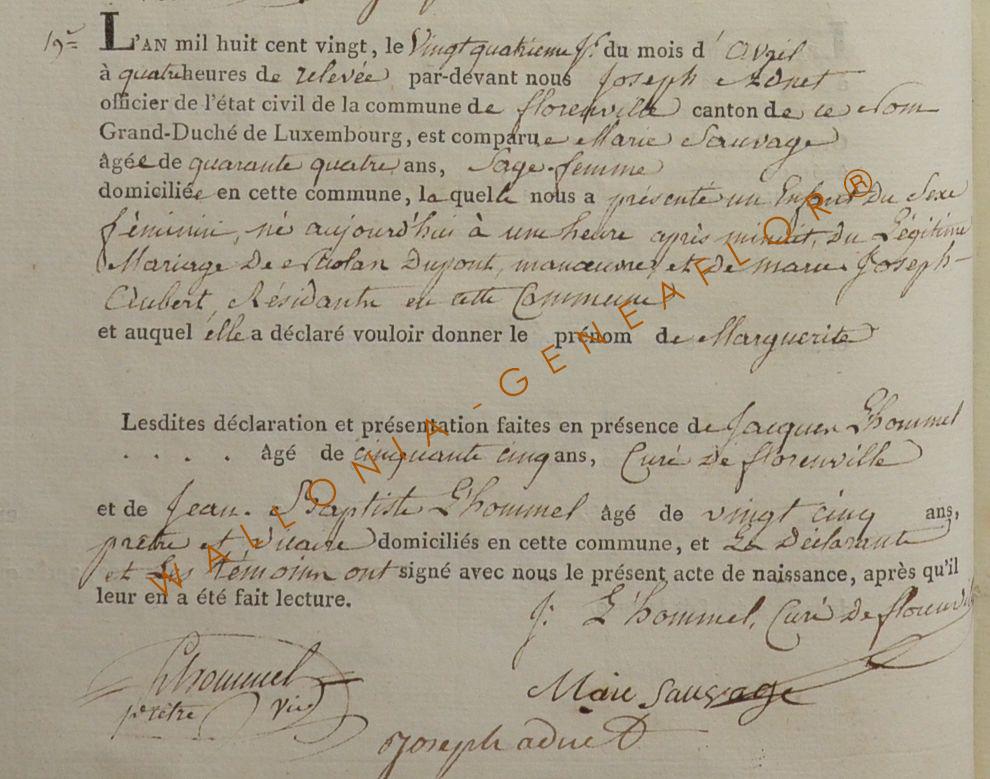 19e
L'AN mil huit cent vingt, le Vingt quatrieme Jr. du mois d'avril
à quatre heures de relevée par-devant nous Joseph Adnet
officier de l'état civil de la commune de florenville canton de ce Nom
Grand-Duché de Luxembourg, est comparue Marie Sauvage
âgée de quarante quatre ans, Sage femme
domiciliée en cette commune, laquelle nous a présenté un Enfant Du Sexe
féminin, né aujourd'hui à une heure après minuit, du Légitime
Mariage De Nicolan Dupont, manœuvre, et de marie Joseph
Aubert, Résidante en cette Commune
et auquel elle a déclaré vouloir donner le prénom de Marguerite
Lesdites déclaration et présentation faites en présence de Jacques L'hommel
. . . . âgé de cinquante cinq ans, Curé De florenville
et de Jean Baptiste L'hommel âgé de vingt cinq ans,
pretre et vicaire domiciliés en cette commune, et La Déclarante
et Les témoins ont signé avec nous le présent acte de naissance, après qu'il
leur en a été fait lecture.
J. L'hommel, Curé De florenville
Lhommel
prêtre Vic
Marie Sauvage
Joseph adnet
WALLONIA-GENEAFLOR®